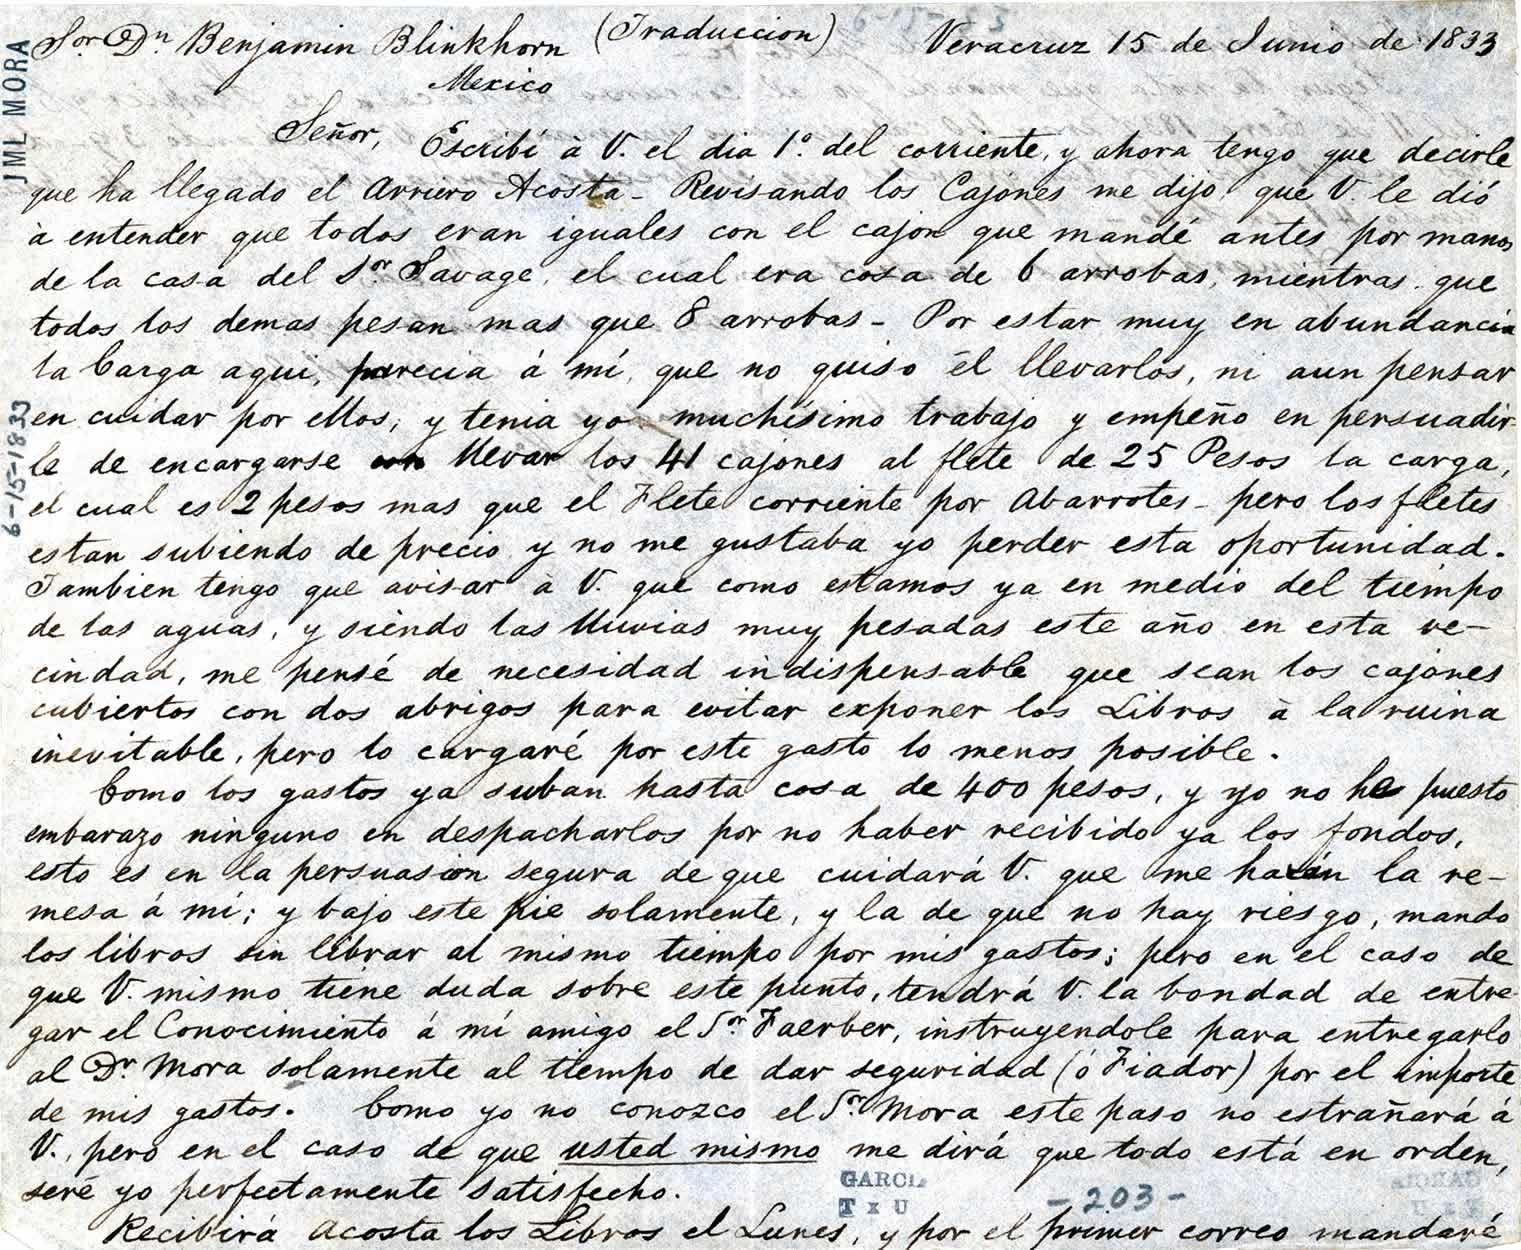 Sor Dn Benjamin Blinkhorn (Traduccion) Veracruz 15 de Junio de 1833
Mexico
Señor, Escribí à V. el dia 1º. del corriente, y ahora tengo que decirle
que ha llegado el Arriero Acosta - Revisando los Cajones me dijo que V. le dió
à entender que todos eran iguales con el cajon que mandé antes por manos
de la casa del Sor. Savage, el cual era cosa de 6 arrobas, mientras que
todos los demas pesan mas que 8 arrobas - Por estar muy en abundancia
la Carga aqui, parecia á mí, que no quiso él llevarlos, ni aun pensar
en cuidar por ellos; y tenia yo muchísimo trabajo y empeño en persuadir-
le de encargarse llevar los 41 cajones al flete de 25 Pesos la carga,
el cual es 2 pesos mas que el Flete corriente por Abarrotes - pero los fletes
estan subiendo de precio y no me gustaba yo perder esta oportunidad.
Tambien tengo que avisar à V. que como estamos ya en medio del tiempo
de las aguas, y siendo las lluvias muy pesadas este año en esta ve-
cindad, me pensé de necesidad indispensable que sean los cajones
cubiertos con dos abrigos para evitar exponer los Libros à la ruina
inevitable, pero lo cargaré por este gasto lo menos posible.
Como los gastos ya suban hasta cosa de 400 pesos, y yo no he puesto
embarazo ninguno en despacharlos por no haber recibido ya los fondos,
esto es en la persuasion segura de que cuidará V. que me harán la re-
mesa á mí; y bajo este pie solamente, y la de que no hay riesgo, mando
los libros sin librar al mismo tiempo por mis gastos; pero en el caso de
que V. mismo tiene duda sobre este punto, tendrá V. la bondad de entre-
gar el Conocimiento á mí amigo el Sor Faerber, instruyendole para entregarlo
al Dr. Mora solamente al tiempo de dar seguridad (ó Fiador) por el importe
de mis gastos. Como yo no conozco el Sor. Mora este paso no estrañará á
V., pero en el caso de que usted mismo me dirá que todo está en orden,
seré yo perfectamente satisfecho.
Recibirá Acosta los Libros el Lunes, y por el primer correo mandaré
JML MORA
6-15-1833
GARCIA
T x U
-203-